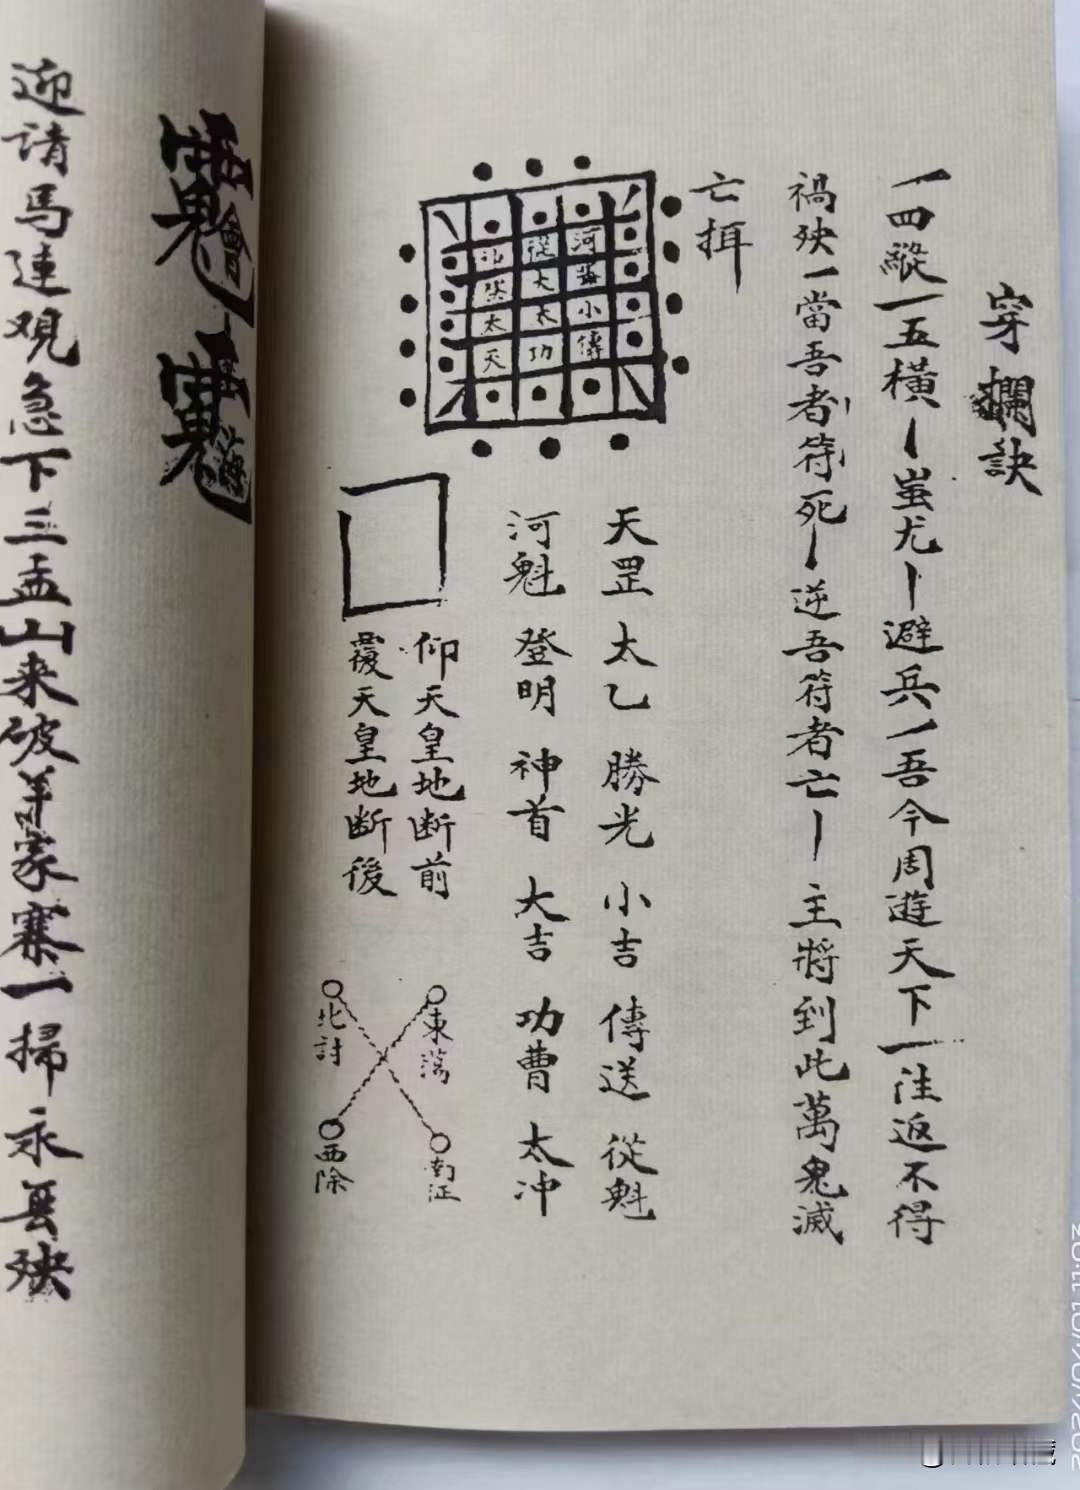 穿攔訣
一四縱一五橫一蚩尤一避兵一吾今周遊天下一注返不得
禍殃一當吾者符死一逆吾符者亡一主將到此萬鬼滅
亡揖
河 從
小 大
傳 太 太
功 天
天罡 太乙 勝光 小吉 傳送 從魁
河魁 登明 神首 大吉 功曹 太冲
仰天皇地断前
覆天皇地断後
東蕩
南征
北討
西除
迎请馬連观急下三孟山来破羊家寨一掃永无殃